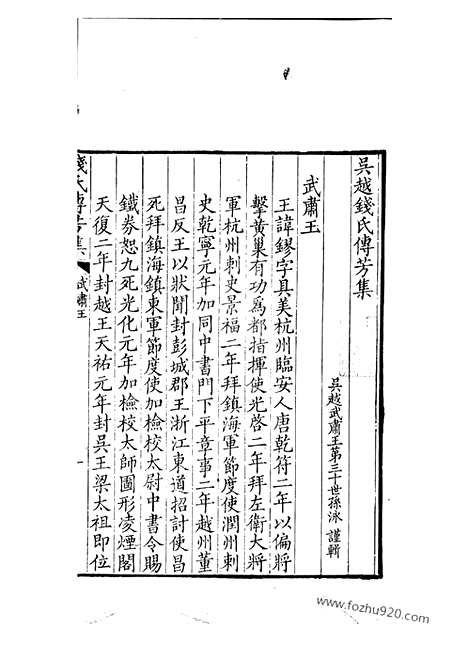 吳越錢氏傳芳集
吳越武肅王第三十世孫泳謹輯
武肅王
王諱鏐字具美杭州臨安人唐乾符二年以偏將
擊黃巢有功爲都指揮使光啓二年拜左衛大將
軍杭州刺史景福二年拜鎮海軍節度使潤州刺
史乾寧元年加同中書門下平章事二年越州董
昌反王以狀聞封彭城郡王浙江東道招討使昌
死拜鎮海鎮東軍節度使加檢校太尉中書令賜
鐵券恕九死光化元年加檢校太師圖形凌煙閣
天復二年封越王天祐元年封吳王梁太祖即位
錢氏傳芳集
武肅王
一
www.fozhu920.com